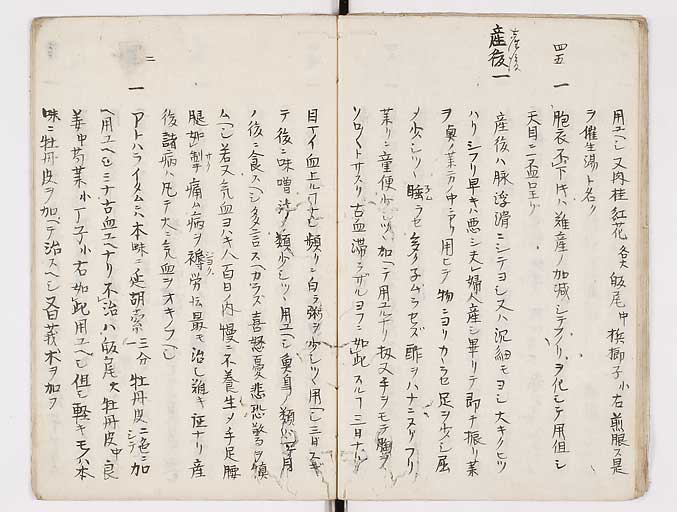 用ユヘシ又肉桂紅花各大 皈尾中 梹榔子小右煎服ス是
ヲ催生湯ト名ク
四五 一 胞衣不下ルハ難産ノ加減シテフリヲ化シテ用但シ
天目ニ一盃呈リ
産後
産後一 産後ハ脉浮滑ニシテヨシ又ハ沉細モヨシ大キクヒツ
ハリシフリ早キハ悪シ夫婦人産シ畢リテ即チ振リ薬
ヲ奠ノ薬ニ中ニリ用ヒテ物ニヨリカヽラセ足ヲ少シ屈
メ少シツヽ睡ラセ多ク子ムラセズ酢ヲハナニスリフリ
薬リニ童便少シツヽ加ヘテ用ユルナリ扨又手ヲモテ胸ヲ
ソロソロトサスリ古血滞ラザルヨフニ如此スルヿ三日ナリ
目丁イ血上ルヿナシ頻リニ白ラ粥ヲ少シツヽ用ヘシ三日スギ
テ後ニ味噌漬ノ類少シツヽ用ユヘシ魚鳥ノ類ハ半月
ノ後ニ食スヘシ多ク言スヘカラズ喜怒憂悲恐驚ヲ慎
ムヘシ若又気血ヨハキハ百日ノ内慢ニ不養生メ手足腰
腿如掣サク痛ム病ヲ褥ジヨク労ト云最モ治シ難キ症ナリ産
後諸病ハ凡テ大ニ気血ヲオキノフヘシ
二 一 アトハライタムニハ本味ニ延胡索一三分 牡丹皮二色ニシテ加
ヘ用ユヘシミナ古血ユヘナリ不治ハ皈尾大 牡丹皮中 良
姜中 芍薬小 丁子小 右如此用ユヘシ但シ軽キモノハ本
味ニ牡丹皮ヲ加ヘテ治スヘシ又曰莪朮ヲ加ヲ